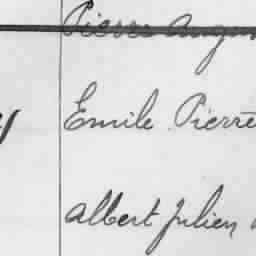 Pierre
Emile Pierre
Albert Julien